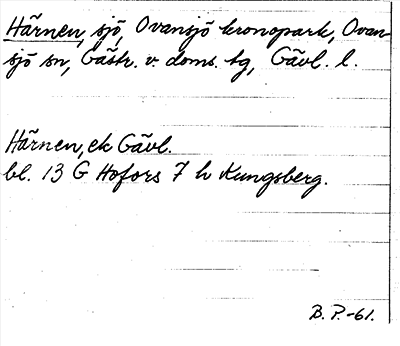 Härnen, sjö, Ovansjö kronopark, Ovan-
sjö sn, Gästr. v. doms. tg, Gävl. l.
Härnen, ek Gävl.
bl. 13 G Hofors 7 h Kungsberg.
B. P.-61.